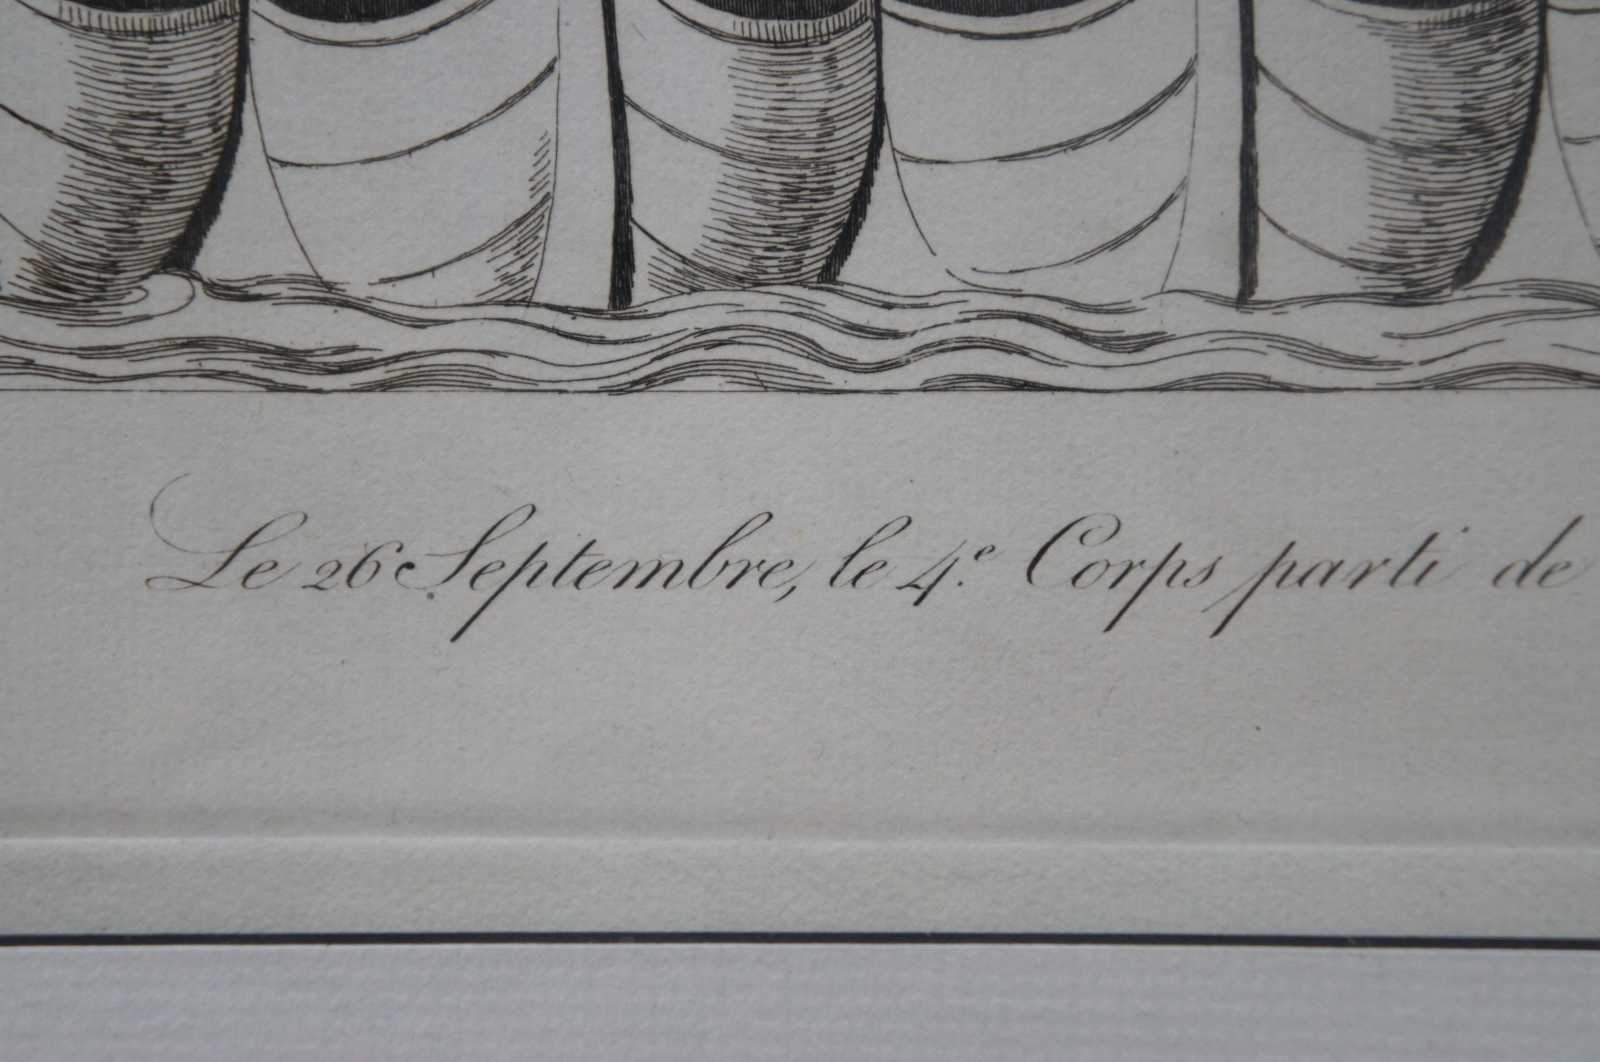 Le 26 Septembre, le 4.e Corps parti de